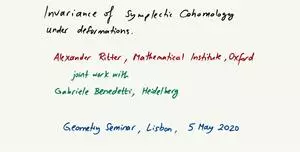 Invariance of Symplectic Cohomology
under deformations.
Alexander Ritter, Mathematical Institute, Oxford
joint work with
Gabriele Benedetti, Heidelberg
Geometry Seminar, Lisbon, 5 May 2020